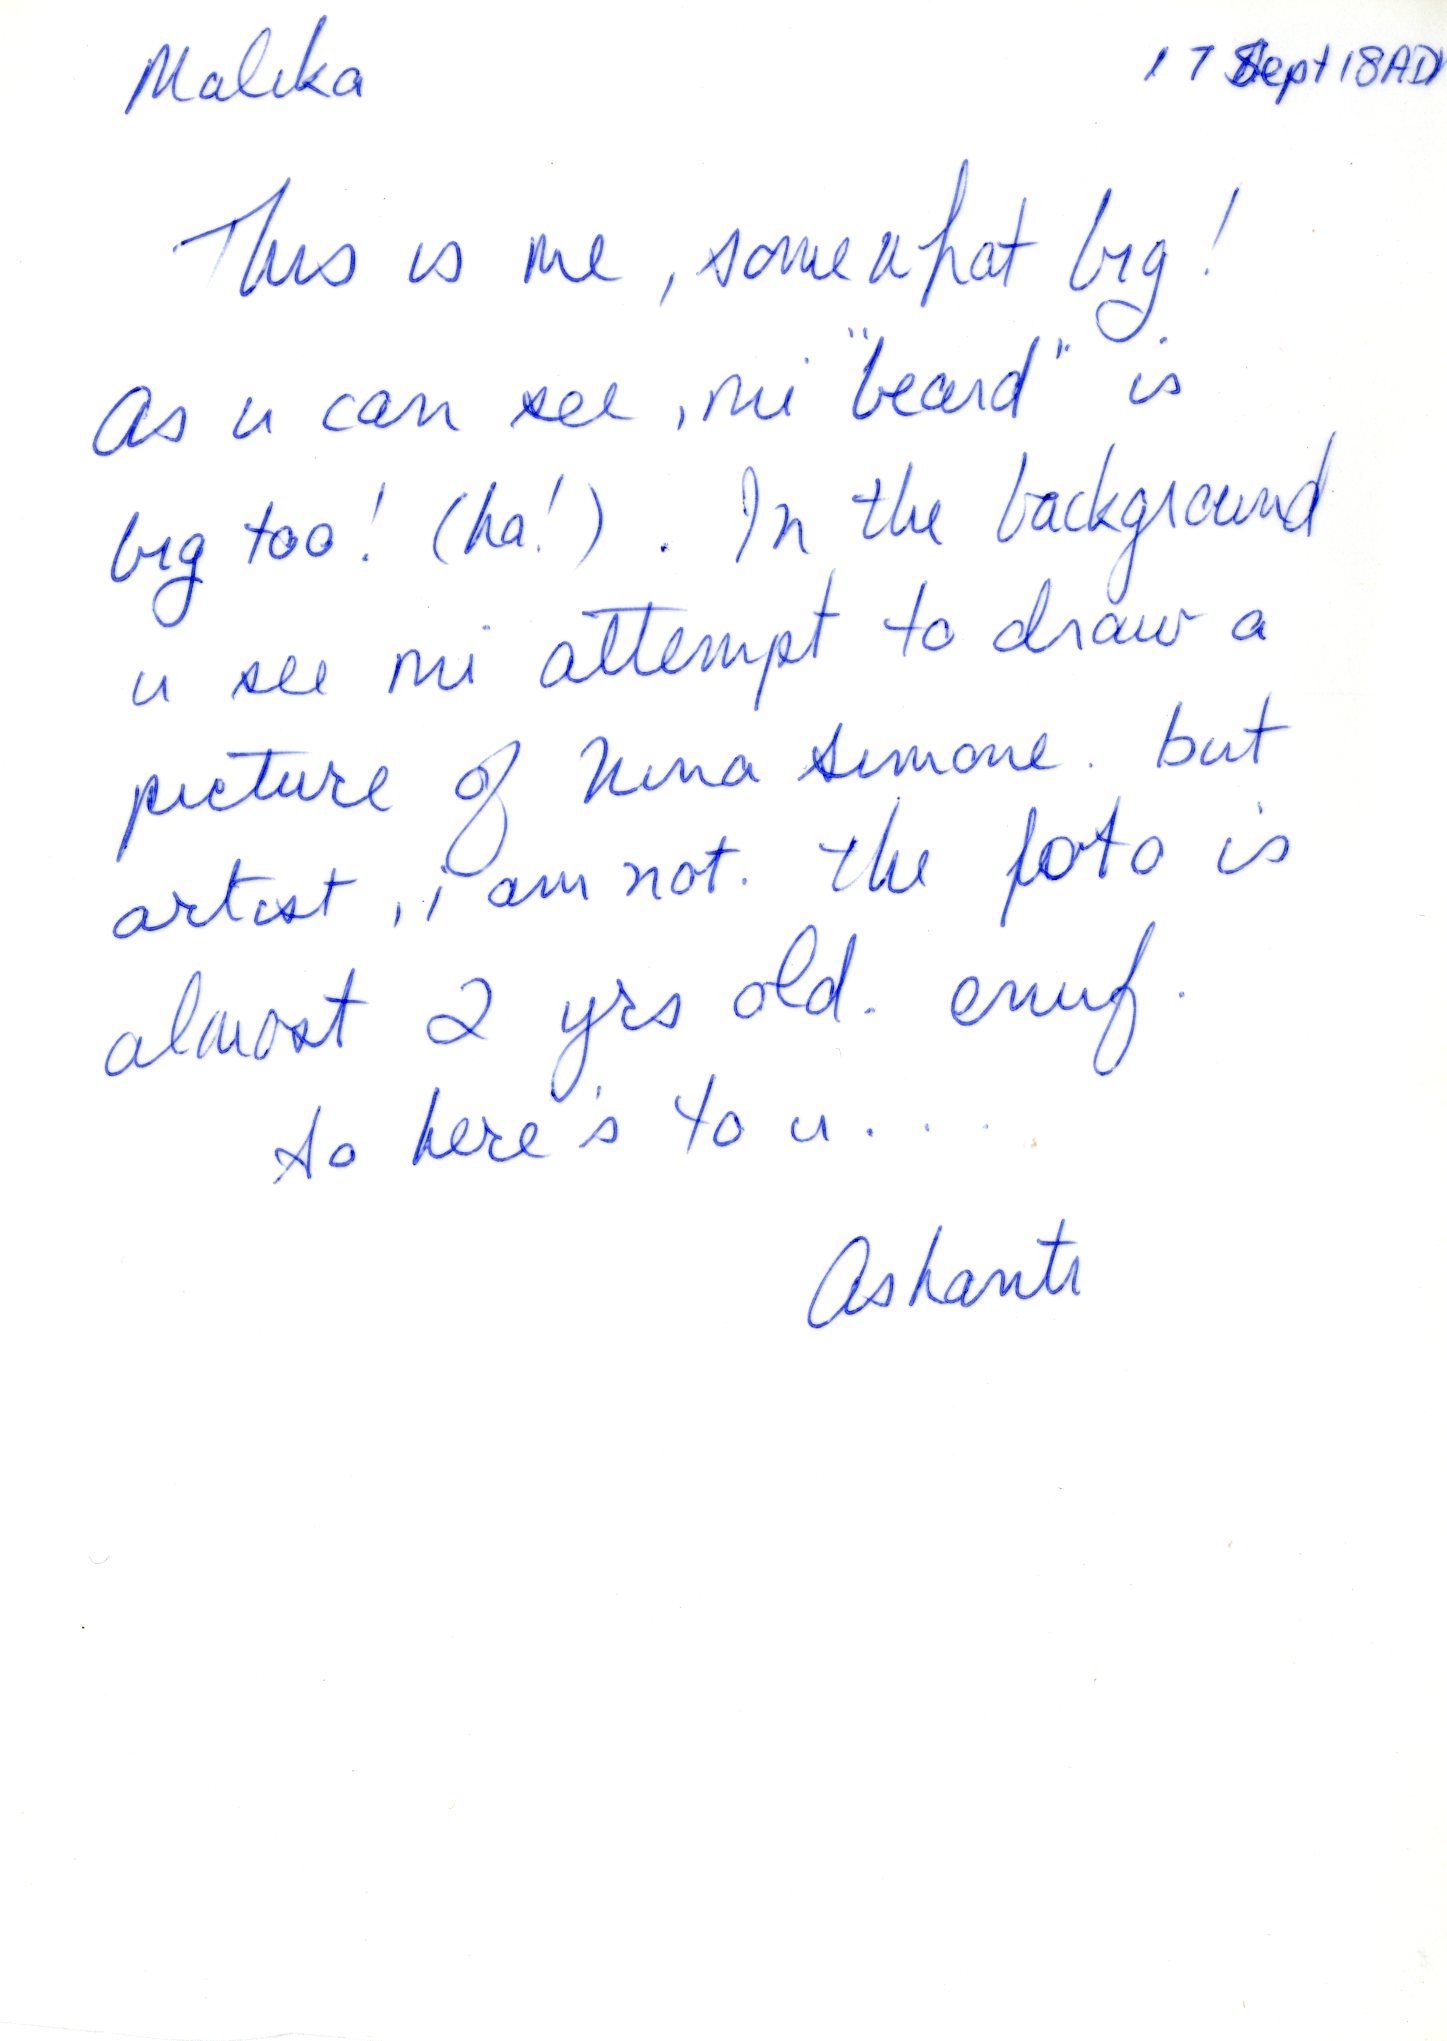 Malika
17 Sept 18ADM
This is me, somewhat big!
As u can see, mi "beard" is
big too! (ha!). In the background
u see mi attempt to draw a
picture of Nina Simone. but
artist, i am not. the foto is
almost 2 yrs old. enuf.
so here's to u....
Ashanti